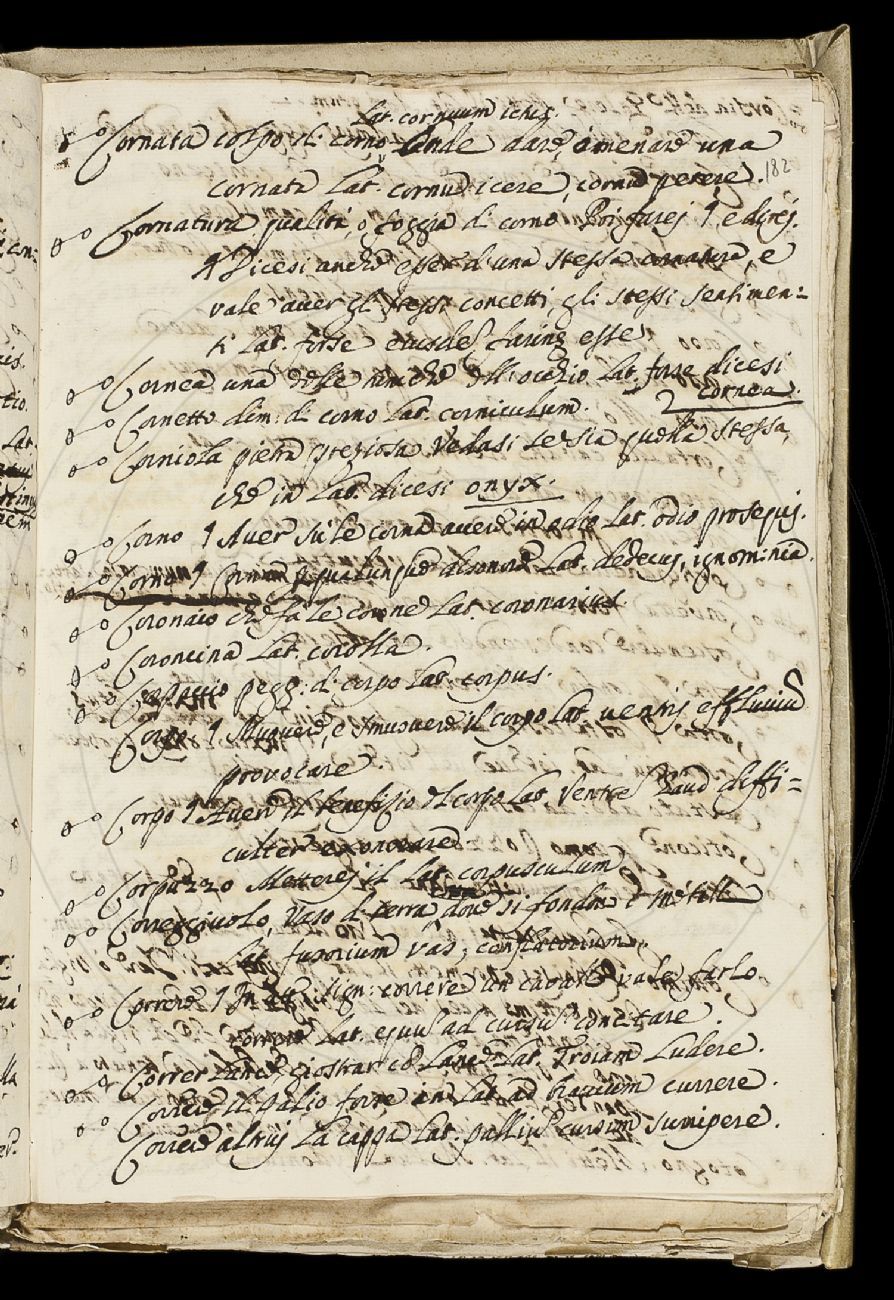 Lat. cornuum ictus.
Cornata colpo di corno, onde dare, ò menare una
182
cornata Lat. cornu icere, cornu petere.
Cornatura qualità, o foggia di corno
¶ Dicesi anche esser d'una stessa cornatura, e
vale aver gli stessi concetti, gli stessi sentimen=
ti Lat. forse eiusdem farinae esse
Cornea una delle tuniche dell'occhio Lat. forse dicesi
cornea.
Cornetto dim: di corno Lat. corniculum.
Corniola pietra preziosa Vedasi se sia quella stessa,
che in Lat. dicesi onyx.
Corno ¶ Aver su le corna avere in odio Lat. odio prosequi.
Corno ¶ Corna p qualunque disonore Lat. dedecus, ignominia.
Coronaio che fa le corone Lat. coronarius
Coroncina Lat. corolla.
Corpaccio pegg: di corpo Lat. corpus.
Corpo ¶ Muovere, e smuovere il corpo Lat. ventris effluviu
provocare.
Corpo ¶ Avere il benefizio del corpo Lat. Ventre haud diffi=
culter exonerare
Corpuzzo Mettere il Lat. corpusculum
Correggiuolo, Vaso di terra dove si fondono i metalli
Lat. fusorium vas, conflatorium.
Correre ¶ In sign: correre un cavallo vale farlo
correre Lat. equu ad cursu concitare.
Correr Lance, giostrar co Lance Lat. Troiam Ludere.
Correre il palio forse in Lat. ad bravium currere.
Correre altrui la cappa Lat. palliu cursim surripere.